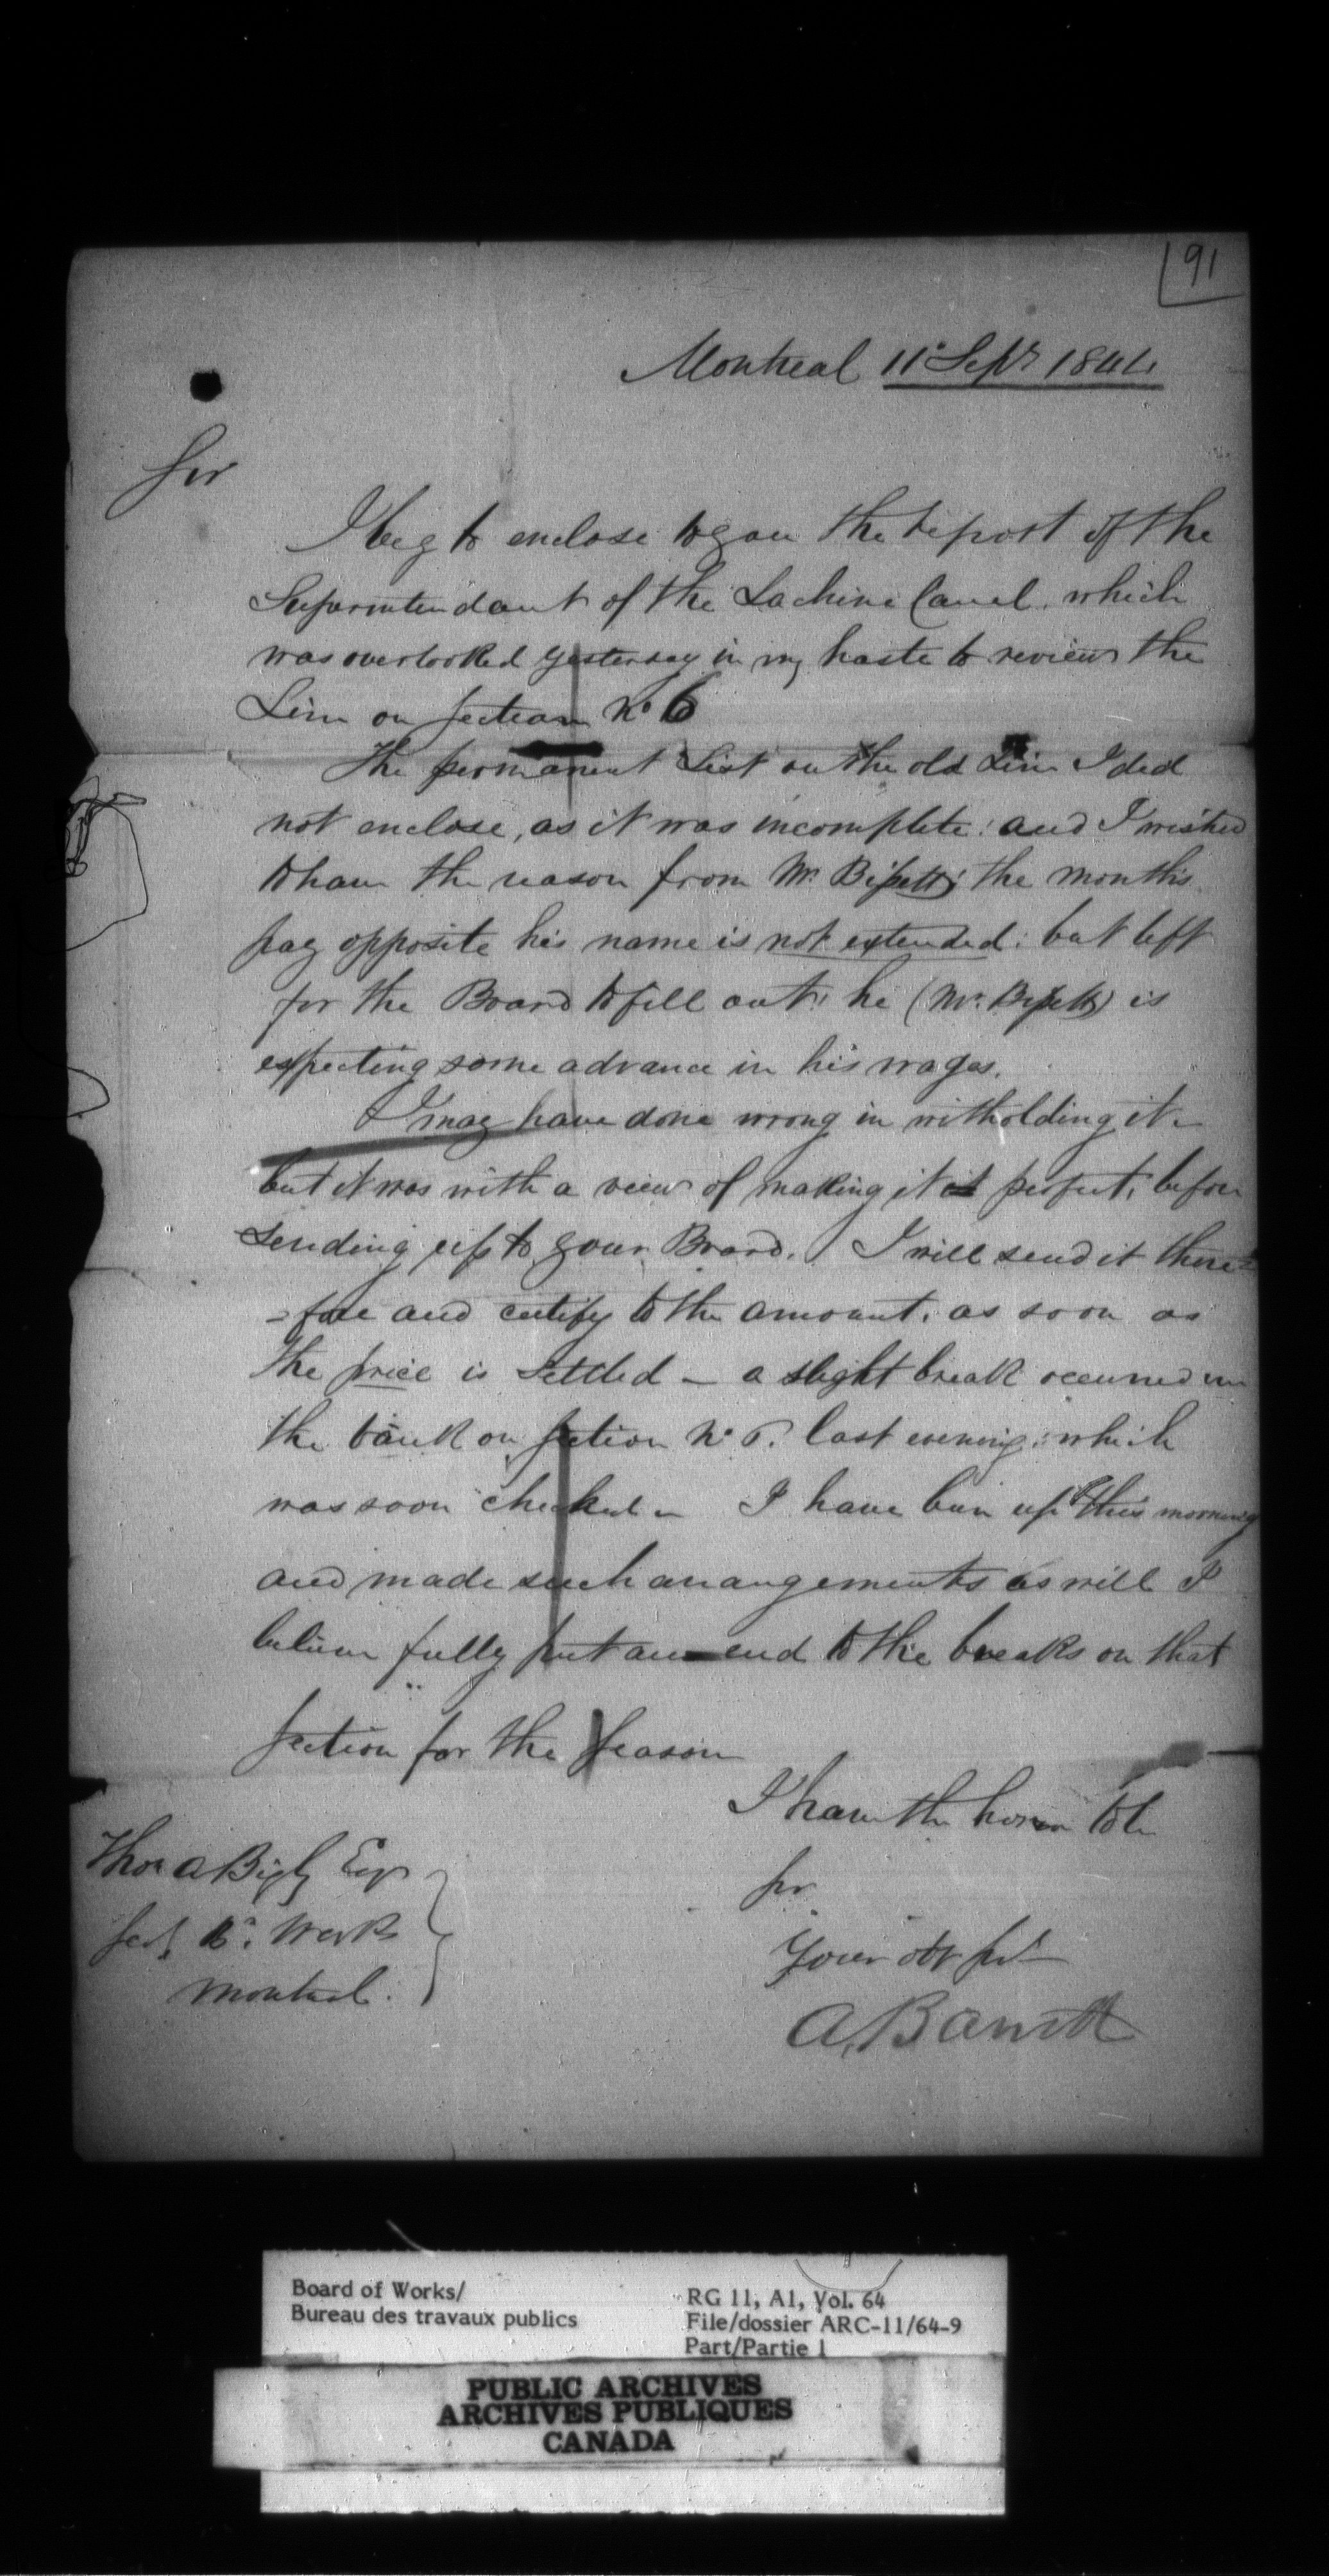 91
Montreal 11th Sepr 1844
Sir
I beg to enclose to you the report of the
Superintendant of the Lachine Canal. which
was overlooked yesterday in my haste to review the
Line on Section No 6
The permanent List on the old Line I did
not enclose, as it was incomplete: and I wished
to have the reason from Mr. Bissett; the months
pay opposite his name is not extended: but left
for the Board to fill out: he (Mr. Bissett) is
expecting some advance in his wages.
I may have done wrong in witholding it -
but it was with a view of making it perfect, before
sending up to your Board. I will send it there=
=fore and certify to the amount, as soon as
the price is settled - a slight break occurred in
the bank on Section No 6. last evening: which
was soon checked - I have been up this morning
and made such arrangements as will I
believe fully put an end to the breaks on that
Section for the Season
I have the honor to be
Sir
Your obt Svt
A. Barrett
Thos A Begly Esqr
Secy Bd. Works
Montreal.
Board of Works/
Bureau des travaux publics
RG 11, A1, Vol. 64
File/dossier ARC-11/64-9
Part/Partie 1
PUBLIC ARCHIVES
ARCHIVES PUBLIQUES
CANADA